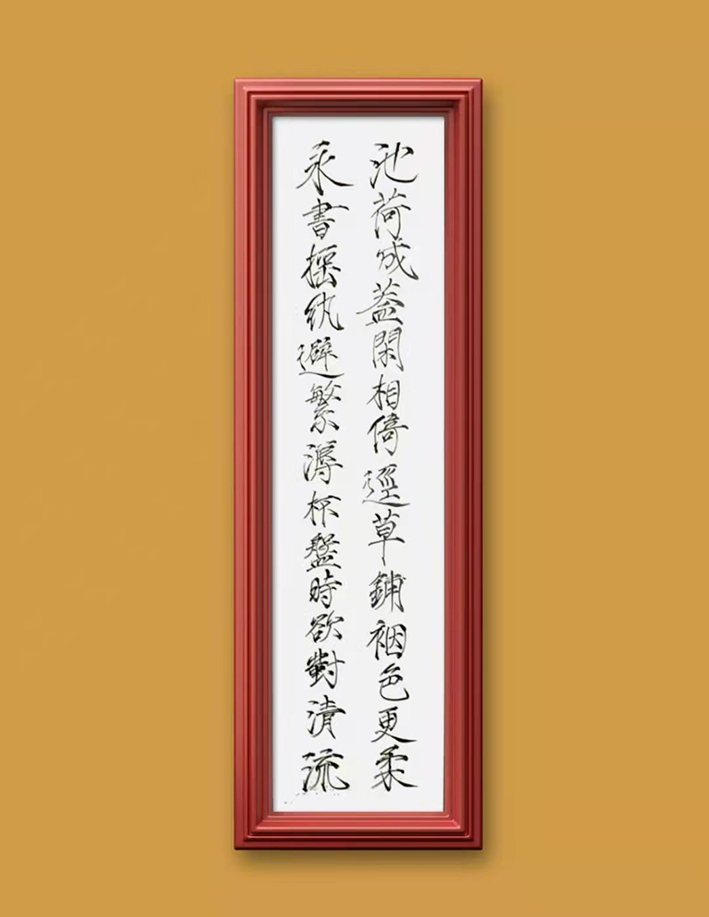 池荷成蓋閑相倚逕草鋪裀色更柔
永書搖紈避繁溽杯盤時欲對清流